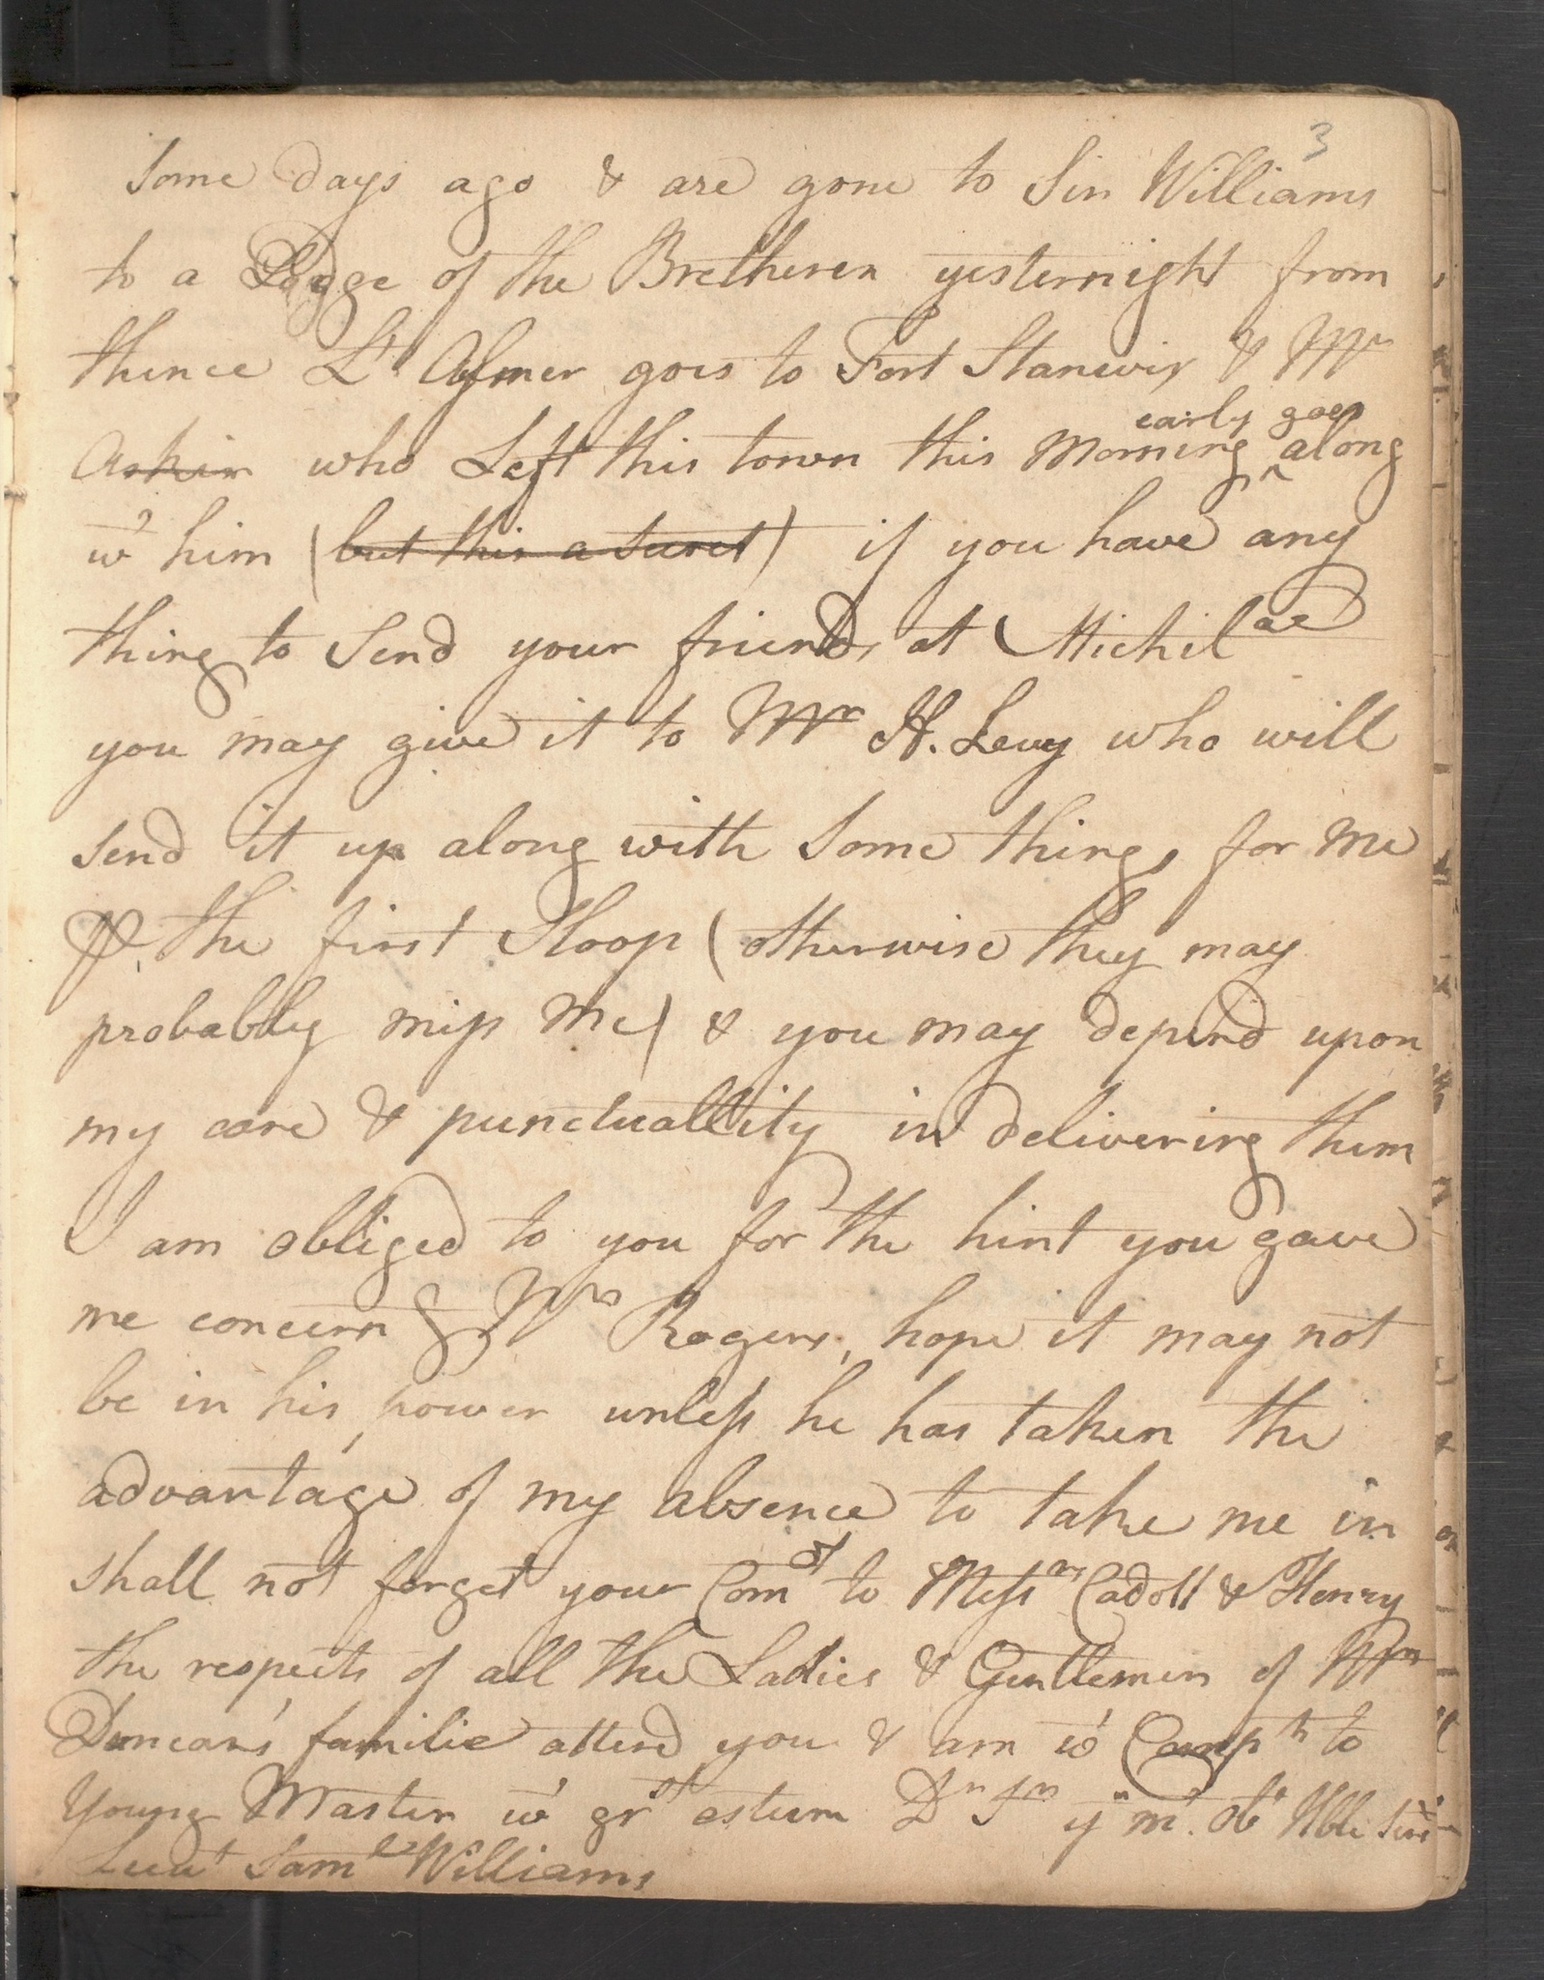 3
Some days ago & are gone to Sir Williams
to a Lodge of the Bretheren yesternight from
thence Lt Aylmer goes to Fort Stanwix & Mr
early goes
Askin who Left this town this Morning ^ along
wt him (but this a Secret) if you have any
thing to Send your friends at Michilac
you may give it to Mr H. Levy who will
send it up along with Some things for me
⅌ the first Sloop (otherwise they may
probably miss me) & you may depend upon
my care & punctuallity in delivering them
I am obliged to you for the hint you gave
me concerng Mr Rogers, hope it may not
be in his power unless he has taken the
advantage of my absence to take me in
shall not forget your Comts to Messrs Cadott & Henry
the respects of all the Ladies & Gentlemen of Mr
Duncan's familie attend you & am wt Compts to
Young Master wt grt esteem Dr Sr yr mt obt Hble Sert
Lieut Saml Williams